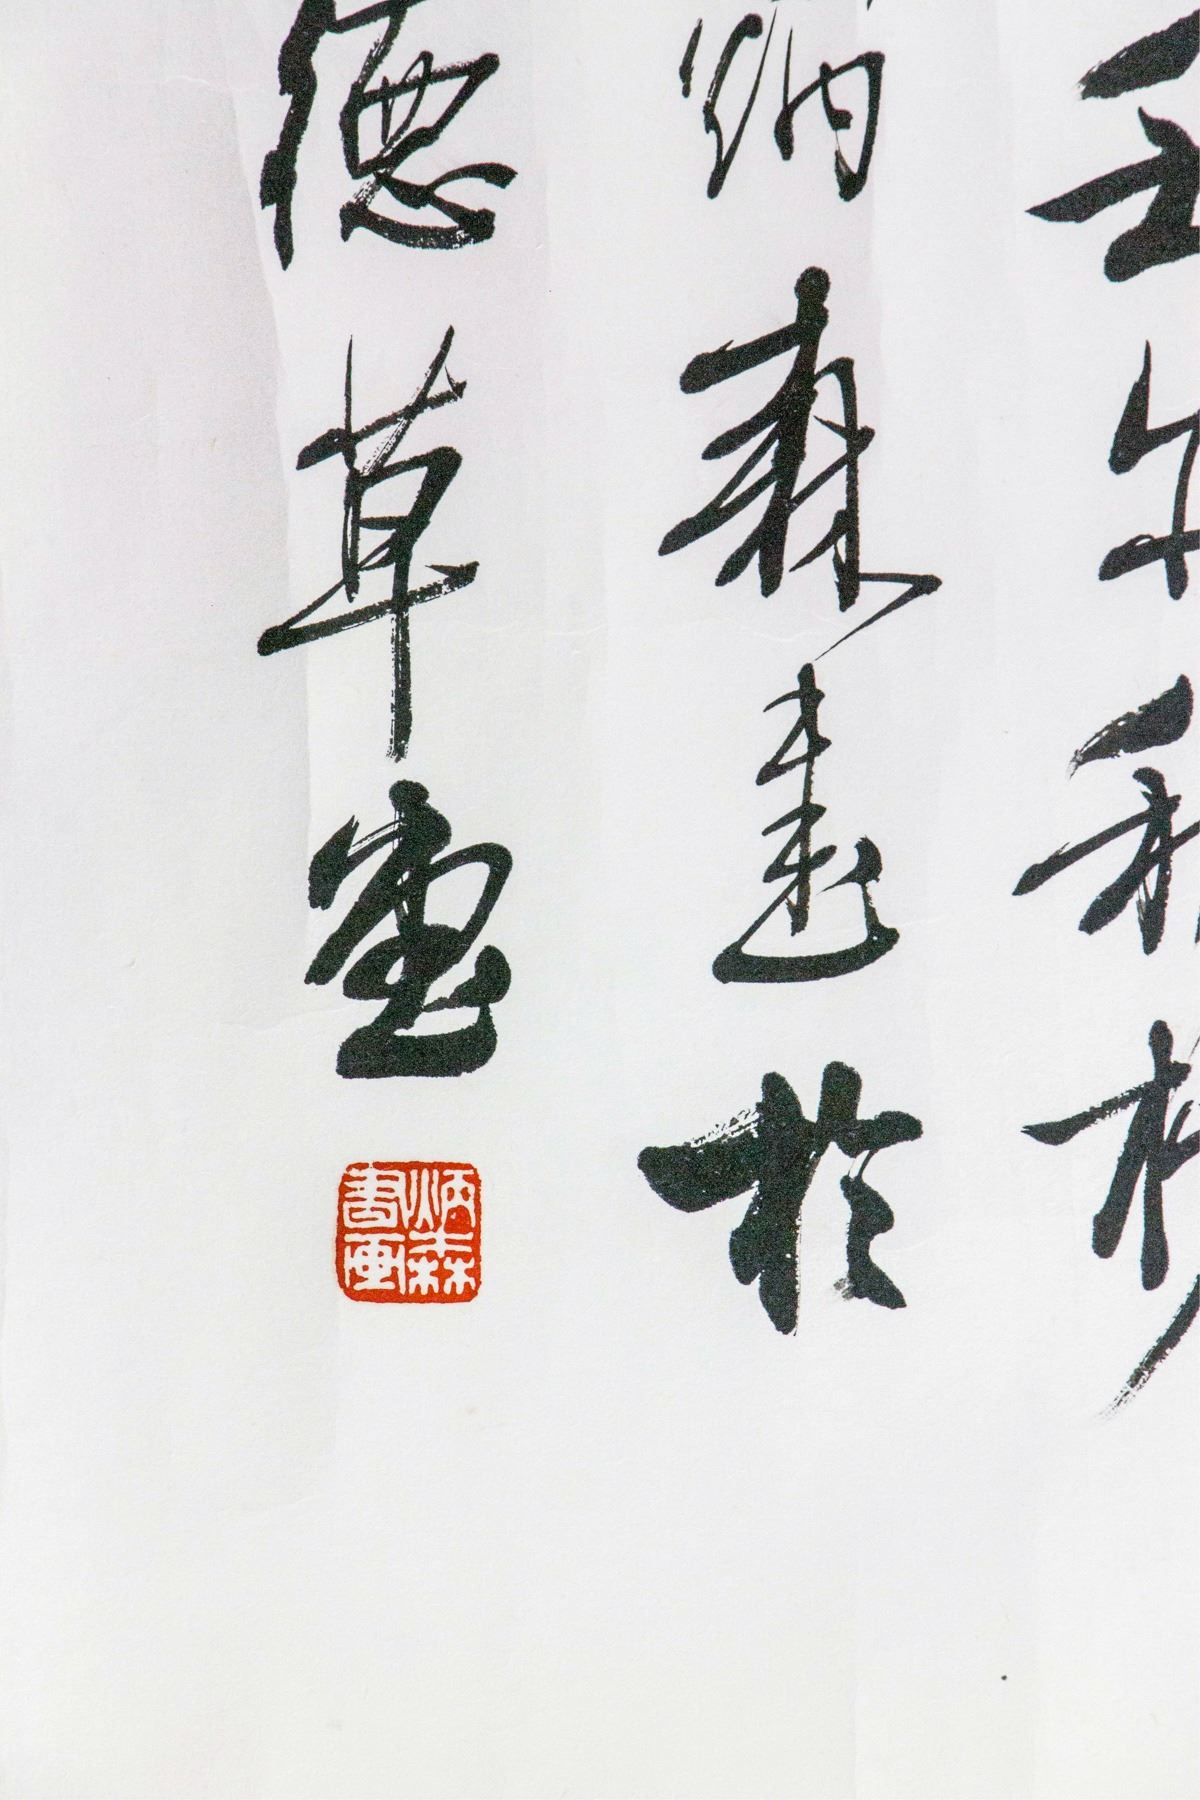 壬午秋杪
炳森於
德草堂
炳森
書画